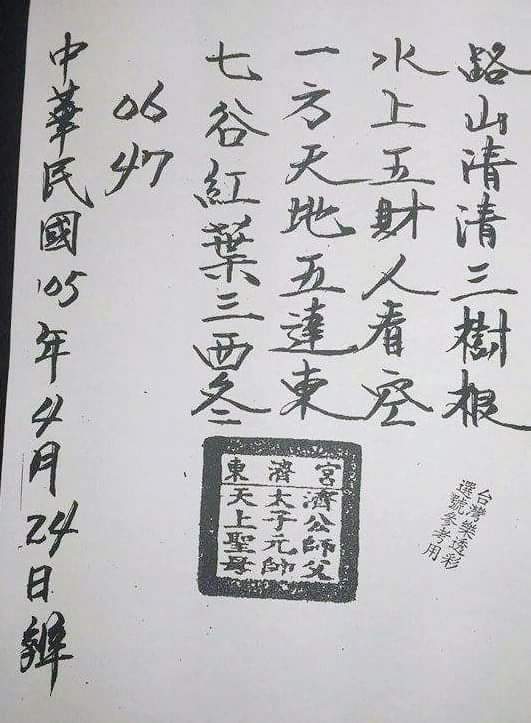 路山清清三樹根
水上五財人看空
一方天地五達東
七谷紅葉三西冬
06
47
中華民國105年4月24日辦
東濟宮
濟公師父
太子元帥
天上聖母
台灣樂透彩
選號參考用